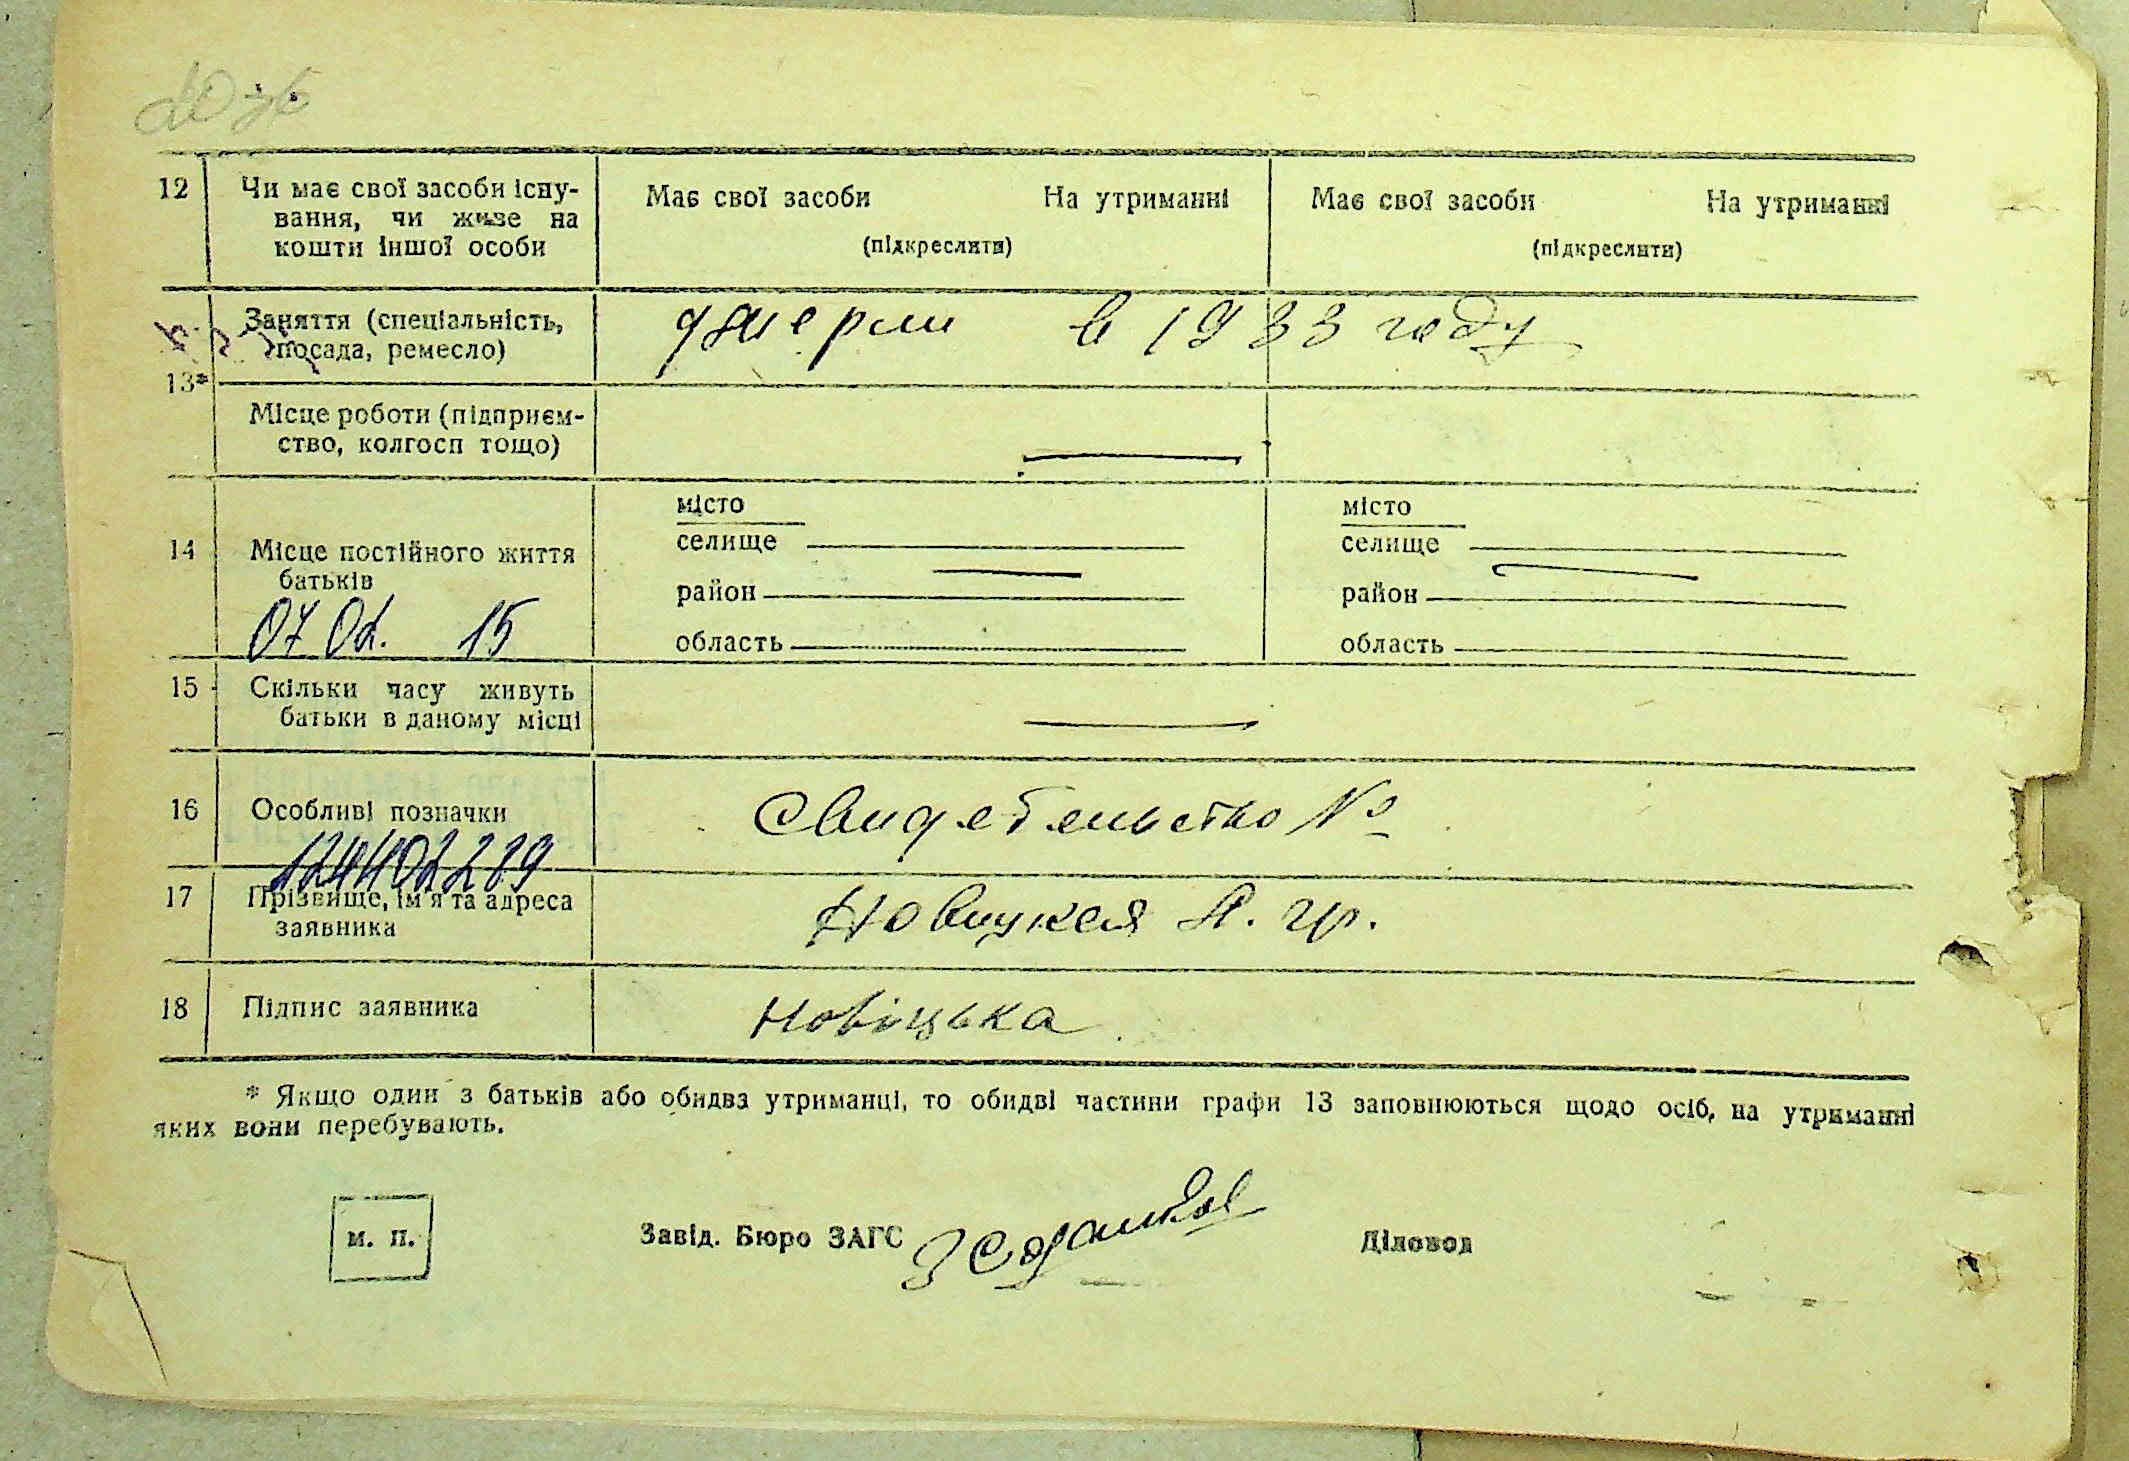 12 Чи має свої засоби існу- Має свої засоби На утриманні Має свої засоби На утриманні
вання, чи живе на
кошти іншої особи (підкреслити) (підкреслити)
Заняття (спеціальність, умерли в 1933 году
посада, ремесло)
13*
Місце роботи (підприєм-
ство, колгосп тощо)
місто місто
14 Місце постійного життя селище селище
батьків район район
07 02. 15 область область
15 Скільки часу живуть
батьки в даному місці
16 Особливі позначки Свидетельство №
17 Прізвище, ім'я та адреса Новицкая А. гр.
заявника
18 Підпис заявника Новіцька
* Якщо один з батьків або обидва утриманці, то обидві частини графи 13 заповнюються щодо осіб, на утриманні
яких вони перебувають.
м. п. Завід. Бюро ЗАГС Діловод